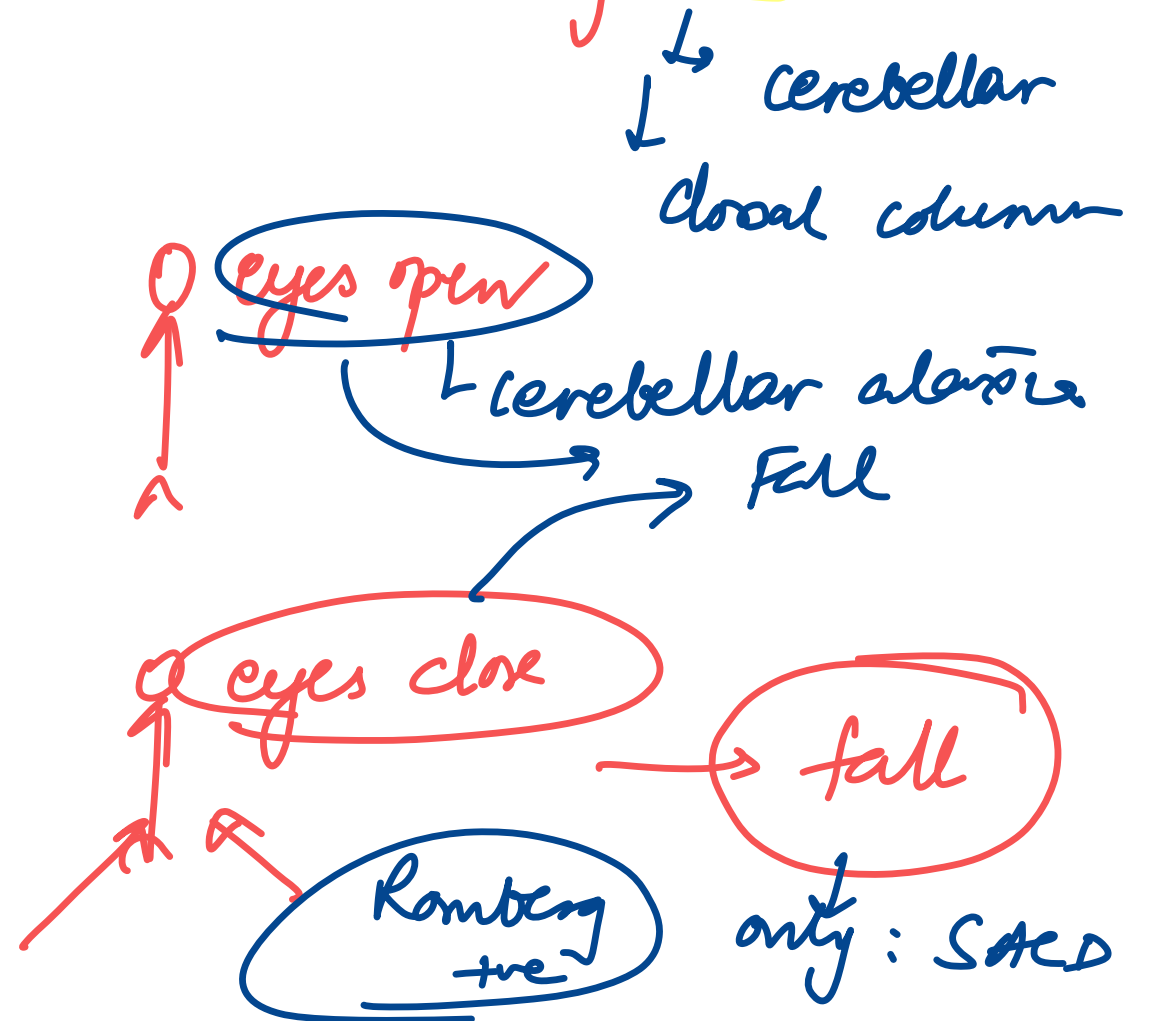 cerebellar
dorsal column
eyes open
cerebellar ataxia
Fall
eyes close
fall
Romberg
+ve
only : SACD